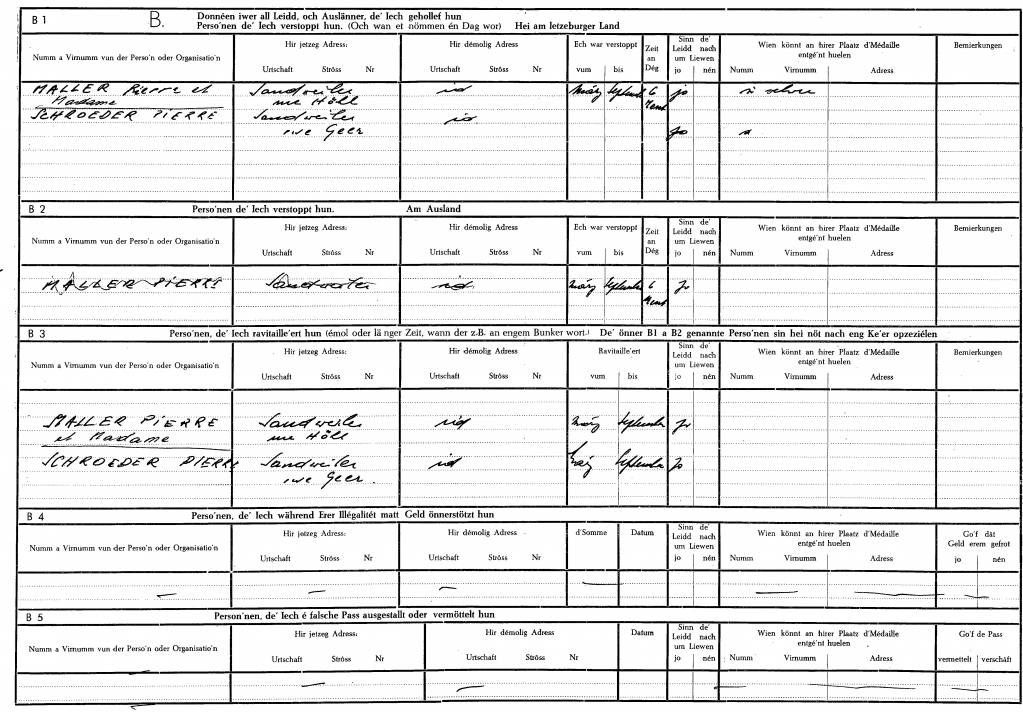 B 1 B. Donnéen iwer all Leidd, och Auslänner, de' Iech gehollef hun
Perso'nen de' Iech verstoppt hun. (Och wan et nömmen én Dag wor) Hei am letzeburger Land
Numm a Virnumm vun der Perso'n oder Organisatio'n Hir jetzeg Adress: Hir démolig Adress Ech war verstoppt Zeit an Dég Sinn de' Leidd nach um Liewen Wien könnt an hirer Plaatz d'Médaille entgé'nt huelen Bemierkungen
Urtschaft Ströss Nr Urtschaft Ströss Nr vum bis jo nén Numm Virnumm Adress
MALLER Pierre et Sandweiler id März September 6 jo
Madame ume Höhl
SCHROEDER PIERRE Sandweiler id
iwe Geer Jo
B 2 Perso'nen de' Iech verstoppt hun. Am Ausland
Numm a Virnumm vun der Perso'n oder Organisatio'n Hir jetzeg Adress: Hir démolig Adress Ech war verstoppt Zeit an Dég Sinn de' Leidd nach um Liewen Wien könnt an hirer Plaatz d'Médaille entgé'nt huelen
Urtschaft Ströss Nr Urtschaft Ströss Nr vum bis jo nén Numm Virnumm Adress
MALLER PIERRE Sandweiler id März September 6 Jo
B 3 Perso'nen, de' Iech ravitaille'ert hun (émol oder lä nger Zeit, wann der z.B. an engem Bunker wort.) De' önner B1 a B2 genannte Perso'nen sin hei nöt nach eng Ke'er opzeziélen
Numm a Virnumm vun der Perso'n oder Organisatio'n Hir jetzeg Adress: Hir démolig Adress Ravitaille'ert Sinn de' Leidd nach um Liewen Wien könnt an hirer Plaatz d'Médaille entgé'nt huelen Bemierkungen
Urtschaft Ströss Nr Urtschaft Ströss Nr vum bis jo nén Numm Virnumm Adress
MALLER PIERRE Sandweiler id März September Jo
et Madame ume Höhl
SCHROEDER PIERRE Sandweiler id März September Jo
iwe Geer.
B 4 Perso'nen, de' Iech während Erer Illégalitét matt Geld önnerstötzt hun
Numm a Virnumm vun der Perso'n oder Organisatio'n Hir jetzeg Adress: Hir démolig Adress d'Somme Datum Sinn de' Leidd nach um Liewen Wien könnt an hirer Plaatz d'Médaille entgé'nt huelen Go'f dät Geld erem gefrot
Urtschaft Ströss Nr Urtschaft Ströss Nr jo nén Numm Virnumm Adress jo nén
B 5 Person'nen, de' Iech é falsche Pass ausgestallt oder vermöttelt hun
Numm a Virnumm vun der Perso'n oder Organisatio'n Hir jetzeg Adress: Hir démolig Adress Datum Sinn de' Leidd nach um Liewen Wien könnt an hirer Plaatz d'Médaille entgé'nt huelen Go'f de Pass
Urtschaft Ströss Nr Urtschaft Ströss Nr jo nén Numm Virnumm Adress vermettelt verschäft